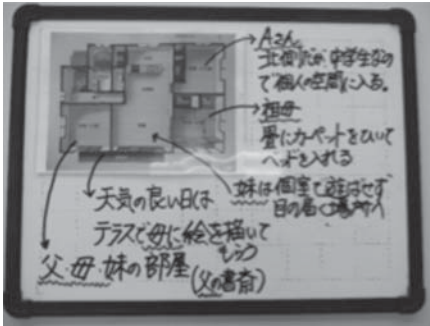 Aさん
北側だが、中学生なの
で個人の空間に入る。
祖母
畳にカーペットをひいて
ベッドを入れる
妹は個室で遊ばせず
目の届く場所へ
天気の良い日は
テラスで母に絵を描いて
もらう
父・母・妹の部屋
(父の書斎)